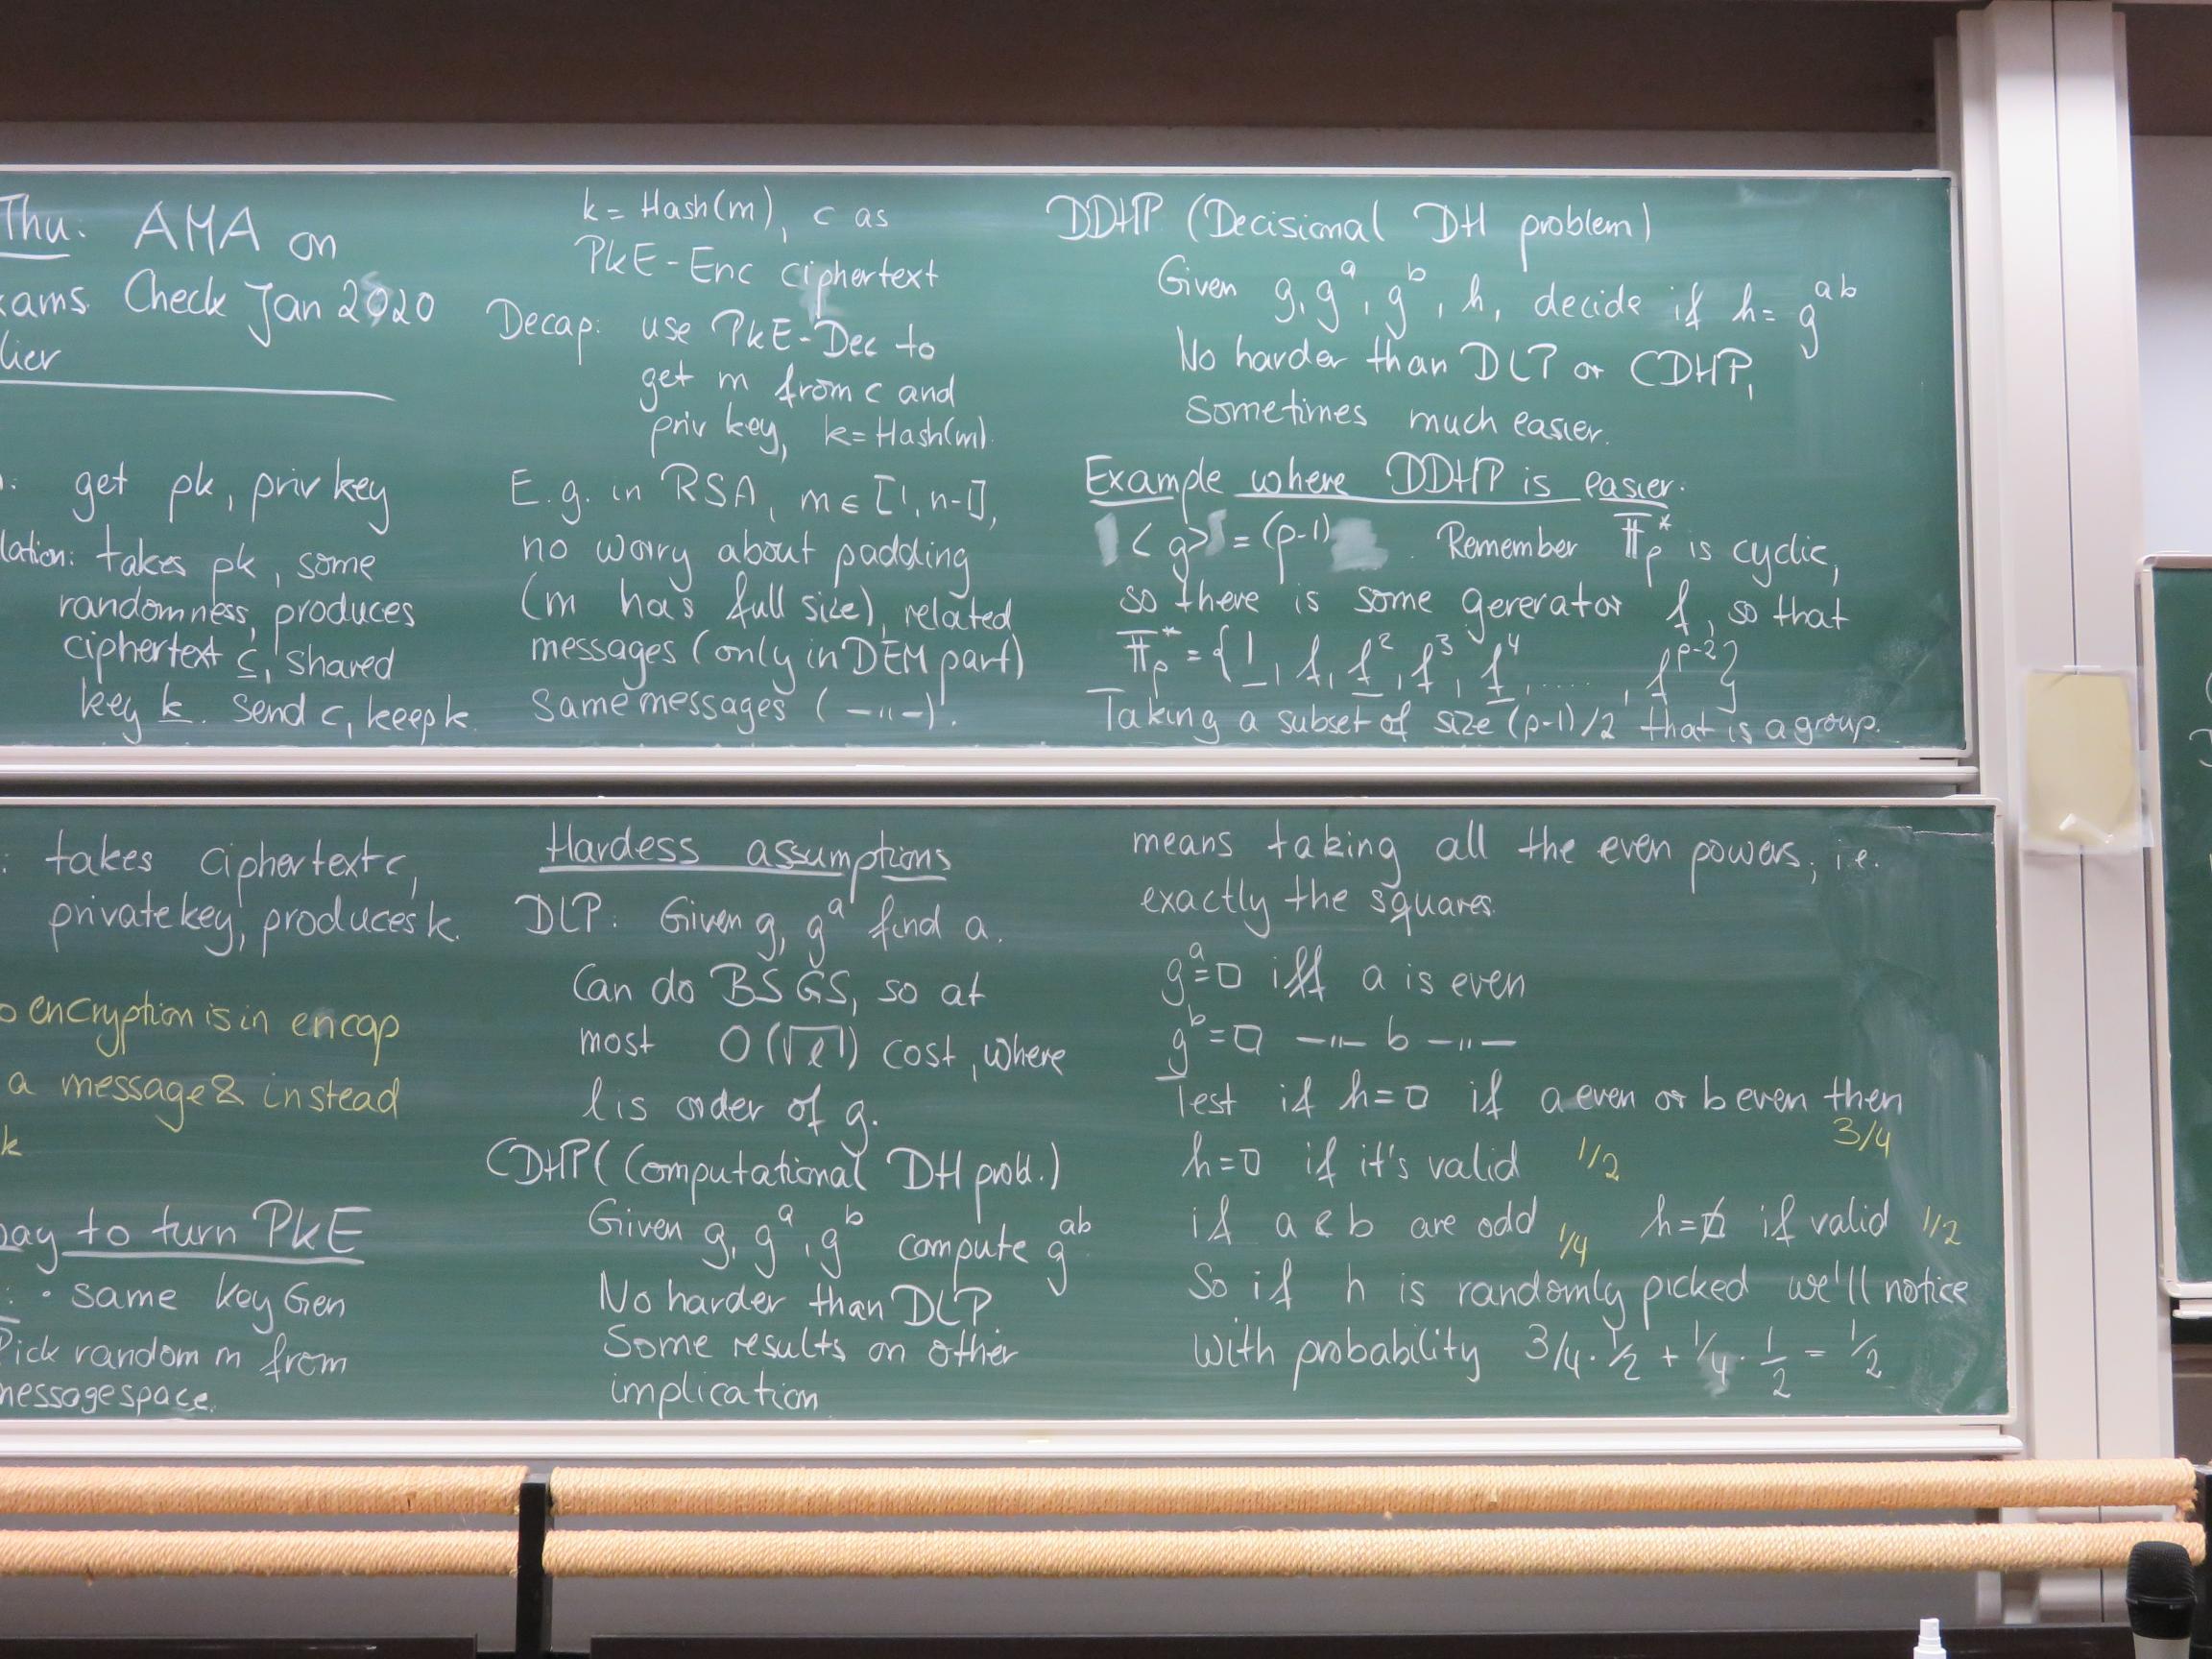 Thu: AMA on
xams. Check Jan 2020
lier
: get pk, priv key
lation: takes pk, some
randomness, produces
ciphertext c, shared
key k. Send c, keep k.
k = Hash(m), c as
PkE-Enc ciphertext
Decap: use PkE-Dec to
get m from c and
priv key, k = Hash(m).
E.g. in RSA, m ∈ [1, n-1],
no worry about padding
(m has full size), related
messages (only in DEM part)
Same messages ( —"—).
DDHP (Decisional DH problem)
Given g, g^a, g^b, h, decide if h = g^ab
No harder than DLP or CDHP,
Sometimes much easier.
Example where DDHP is easier.
<g> = (p-1) . Remember 𝔽p* is cyclic,
so there is some gererator f, so that
𝔽p* = {1, f, f^2, f^3, f^4, ....., f^p-2}
Taking a subset of size (p-1)/2 that is a group.
: takes ciphertext c,
private key, produces k.
o encryption is in encap
a message & instead
k
ay to turn PkE
: · same KeyGen
Pick random m from
message space.
Hardess assumptions
DLP: Given g, g^a find a.
Can do BSGS, so at
most O(√l) cost, where
l is order of g.
CDHP (Computational DH prob.)
Given g, g^a, g^b compute g^ab
No harder than DLP
Some results on other
implication
means taking all the even powers, i.e.
exactly the squares.
g^a = □ iff a is even
g^b = □ —"— b —"—
Test if h = □ if a even or b even then
3/4
h = □ if it's valid 1/2
if a & b are odd 1/4 h = ⍁ if valid 1/2
So if h is randomly picked we'll notice
with probability 3/4 · 1/2 + 1/4 · 1/2 = 1/2